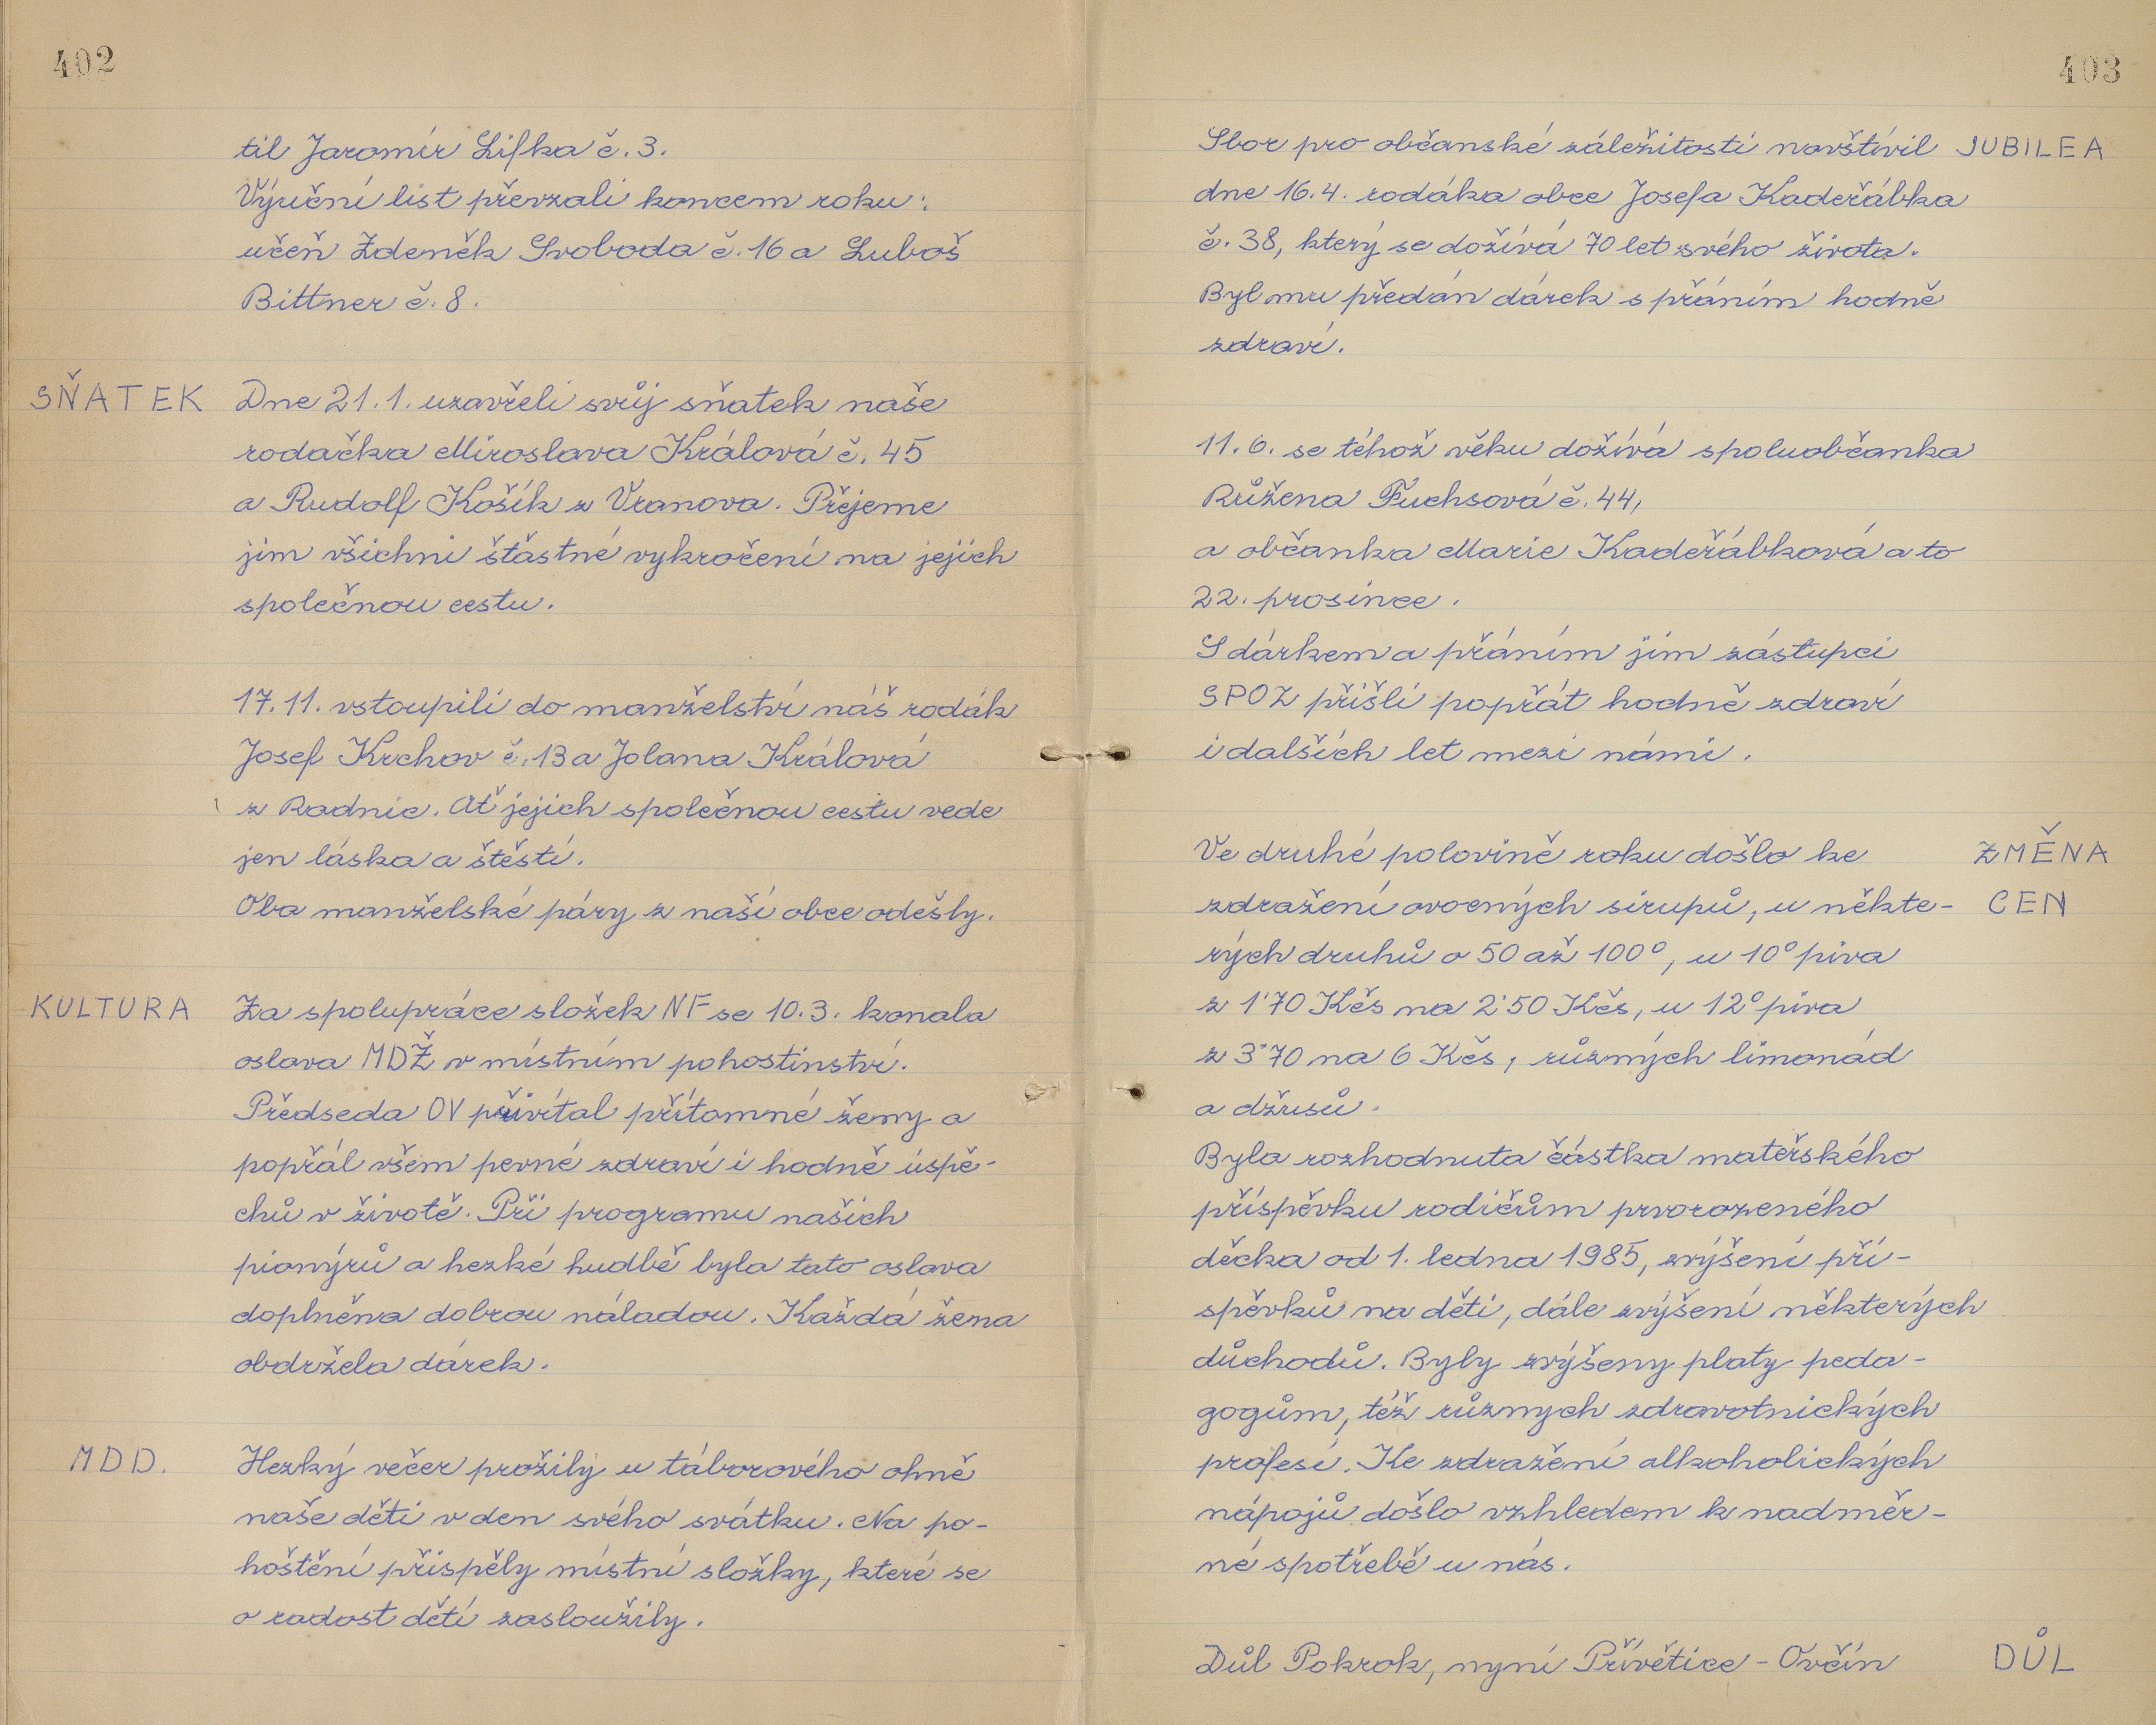 402
til Jaromír Lifka č. 3.
Výuční list převzali koncem roku:
učeň Zdeněk Svoboda č. 16 a Luboš
Bittner č. 8.
SŇATEK Dne 21. 1. uzavřeli svůj sňatek naše
rodačka Miroslava Králová č. 45
a Rudolf Košík z Vranova. Přejeme
jim všichni štěstné vykročení na jejich
společnou cestu.
17. 11. vstoupili do manželství náš rodák
Josef Krchov č. 13 a Jolana Králová
z Radnic. Ať jejich společnou cestu vede
jen láska a štěstí.
Oba manželské páry z naší obce odešly.
KULTURA Za spolupráce složek NF se 10. 3. konala
oslava MDŽ v místním pohostinství.
Předseda OV přivítal přítomné ženy a
popřál všem pevné zdraví i hodně úspě-
chů v životě. Při programu našich
pionýrů a hezké hudbě byla tato oslava
doplněna dobrou náladou. Každá žena
obdržela dárek.
MDD. Hezký večer prožily u táborového ohně
naše děti v den svého svátku. Na po-
hoštění přispěly místní složky, které se
o radost dětí zasloužily.
403
Sbor pro občanské záležitosti navštívil JUBILEA
dne 16. 4. rodáka obce Josefa Kadeřábka
č. 38, který se dožívá 70 let svého života.
Byl mu předán dárek s přáním hodně
zdraví.
11. 6. se téhož věku dožívá spoluobčanka
Růžena Fuchsová č. 44,
a občanka Marie Kadeřábková a to
22. prosince.
S dárkem a přáním jim zástupci
SPOZ přišli popřát hodně zdraví
i dalších let mezi námi.
Ve druhé polovině roku došlo ke ZMĚNA
zdražení ovocných sirupů, u někte- CEN
rých druhů o 50 až 100°, u 10° piva
z 1'70 Kčs na 2'50 Kčs, u 12° piva
z 3'70 na 6 Kčs, různých limonád
a džusů.
Byla rozhodnuta částka mateřského
příspěvku rodičům prvorozeného
děcka od 1. ledna 1985, zvýšení pří-
spěvků na děti, dále zvýšení některých
důchodů. Byly zvýšeny platy peda-
gogům, též různych zdravotnických
profesí. Ke zdražení alkoholických
nápojů došlo vzhledem k nadměr-
né spotřebě u nás.
Důl Pokrok, nyní Přívětice - Ovčín DŮL